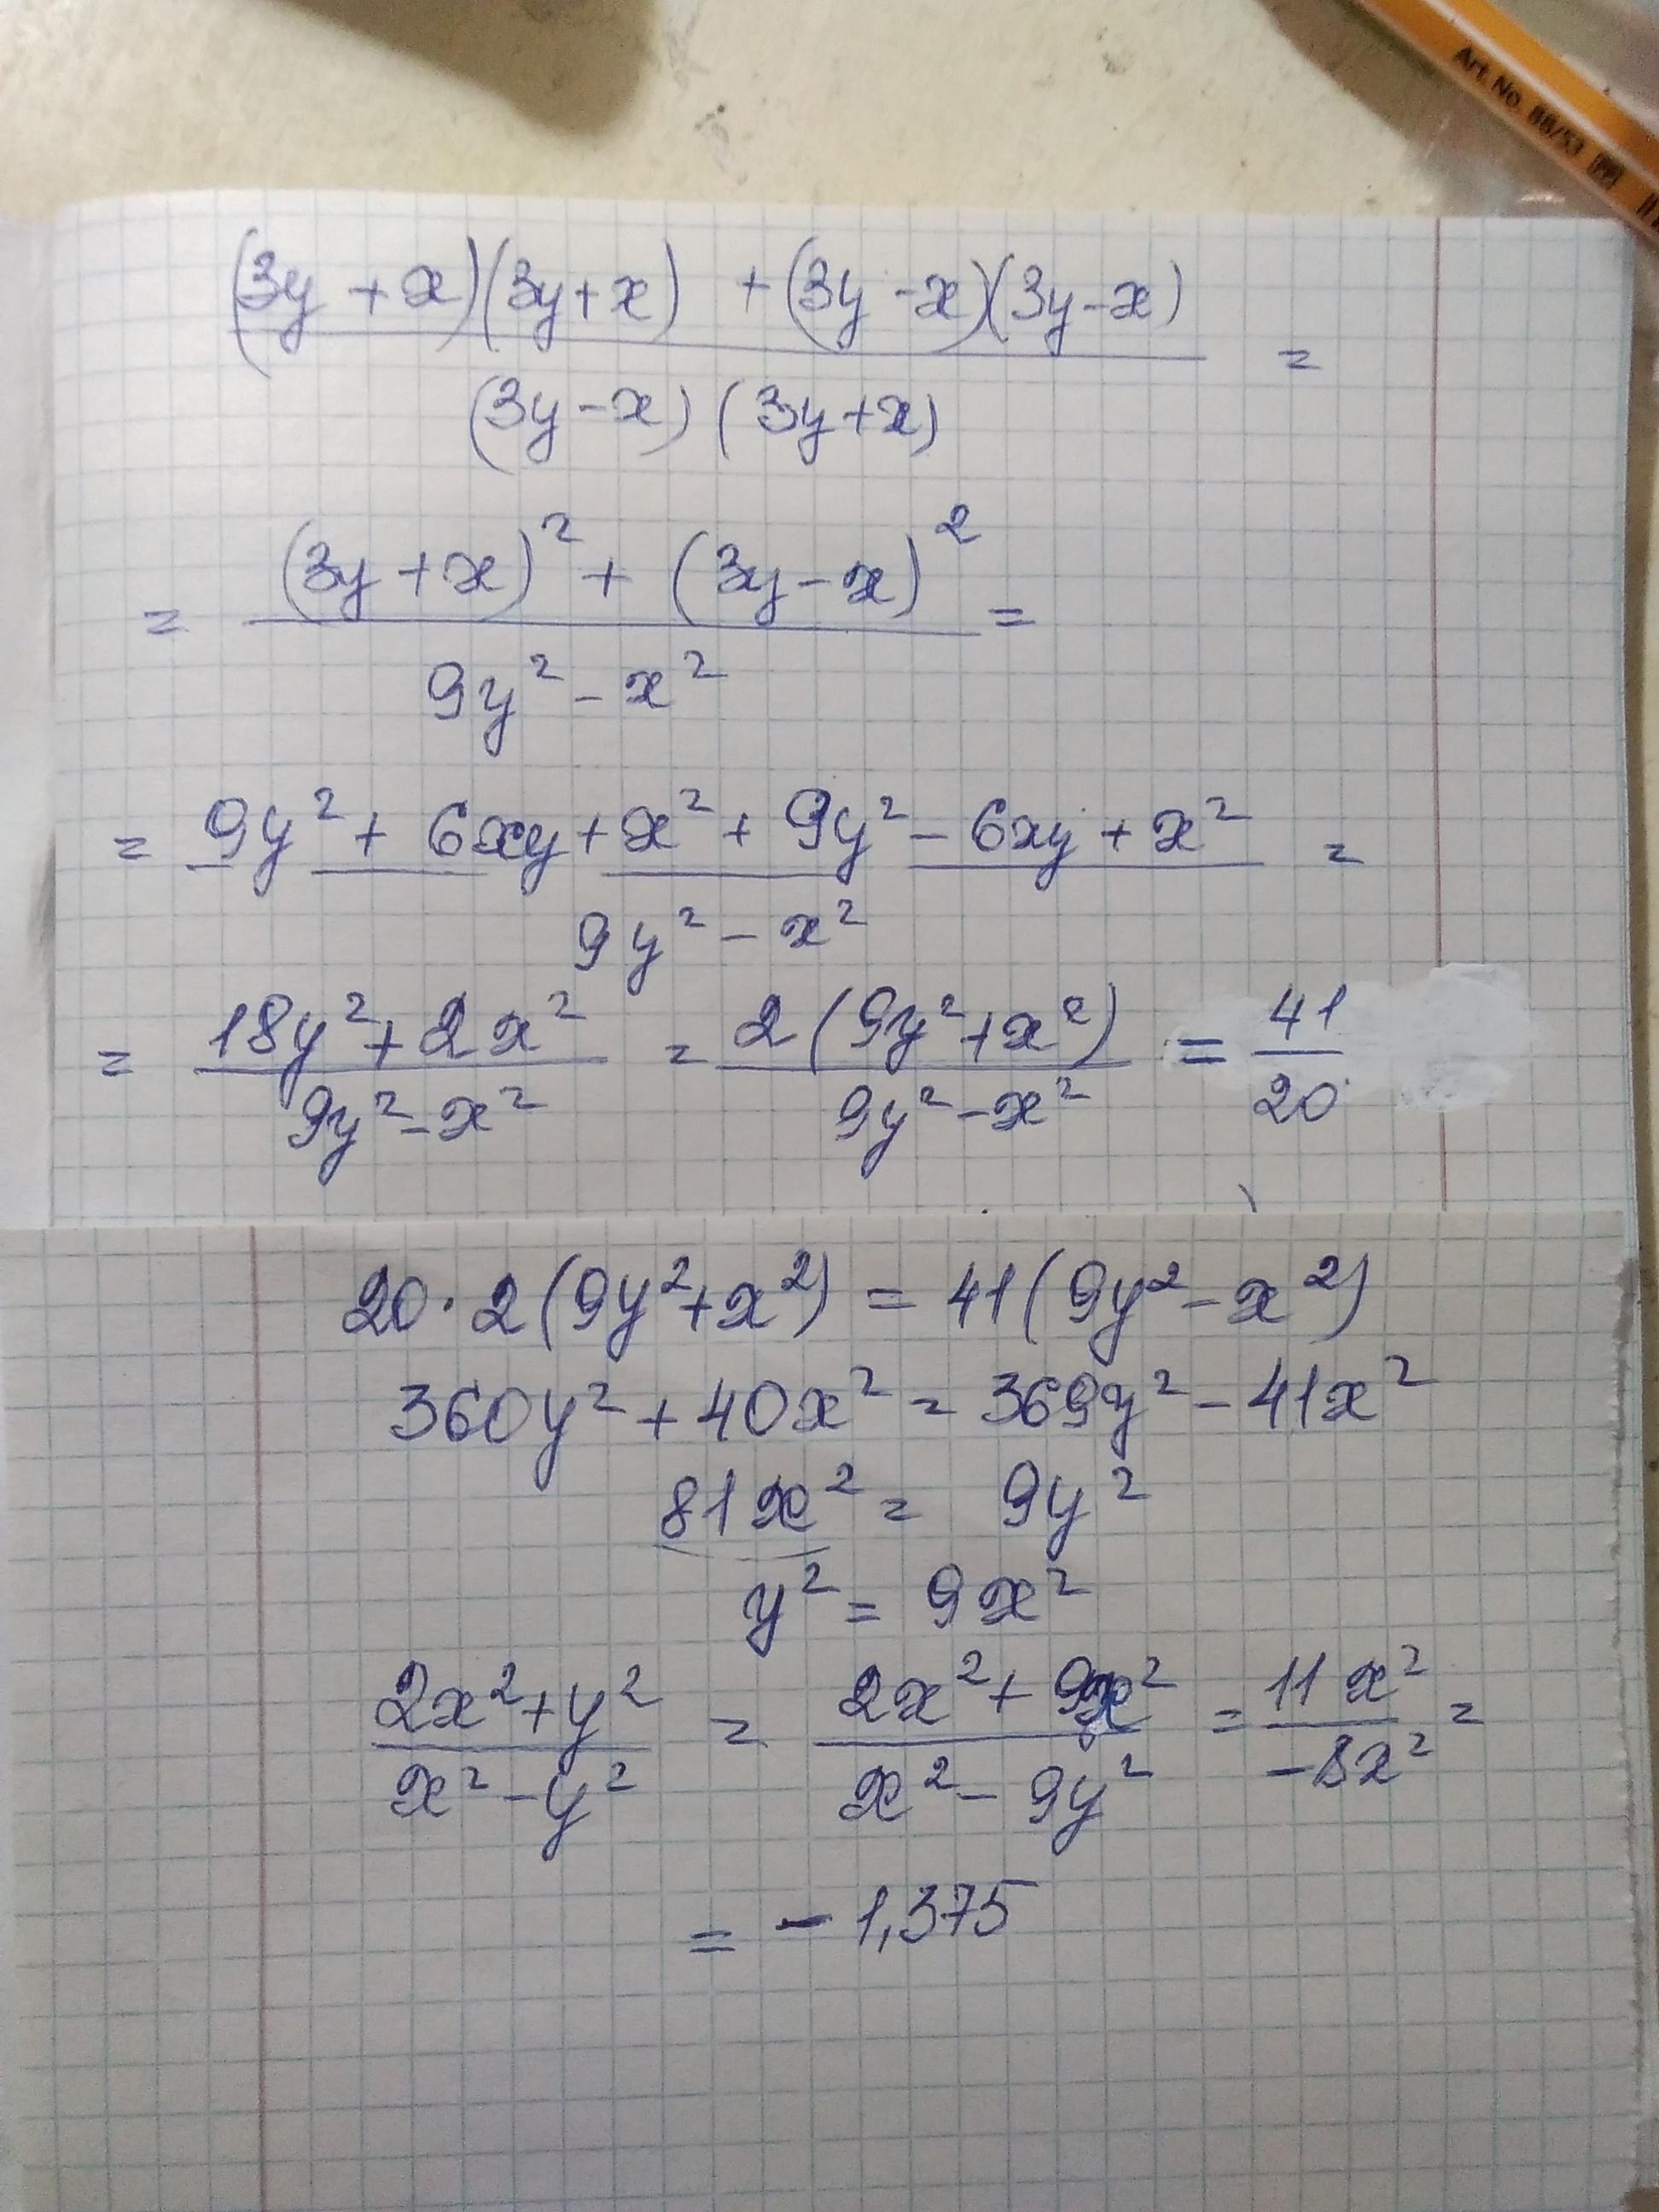 Art. No. 88/53
(3y + x)(3y + x) + (3y - x)(3y - x) =
(3y - x) (3y + x)
= (3y + x)² + (3y - x)² =
9y² - x²
= 9y² + 6xy + x² + 9y² - 6xy + x² =
9y² - x²
= 18y² + 2x² = 2(9y² + x²) = 41
9y² - x² 9y² - x² 20
20 · 2(9y² + x²) = 41(9y² - x²)
360y² + 40x² = 369y² - 41x²
81x² = 9y²
y² = 9x²
2x² + y² = 2x² + 9x² = 11x² =
x² - y² x² - 9y² -8x²
= - 1,375